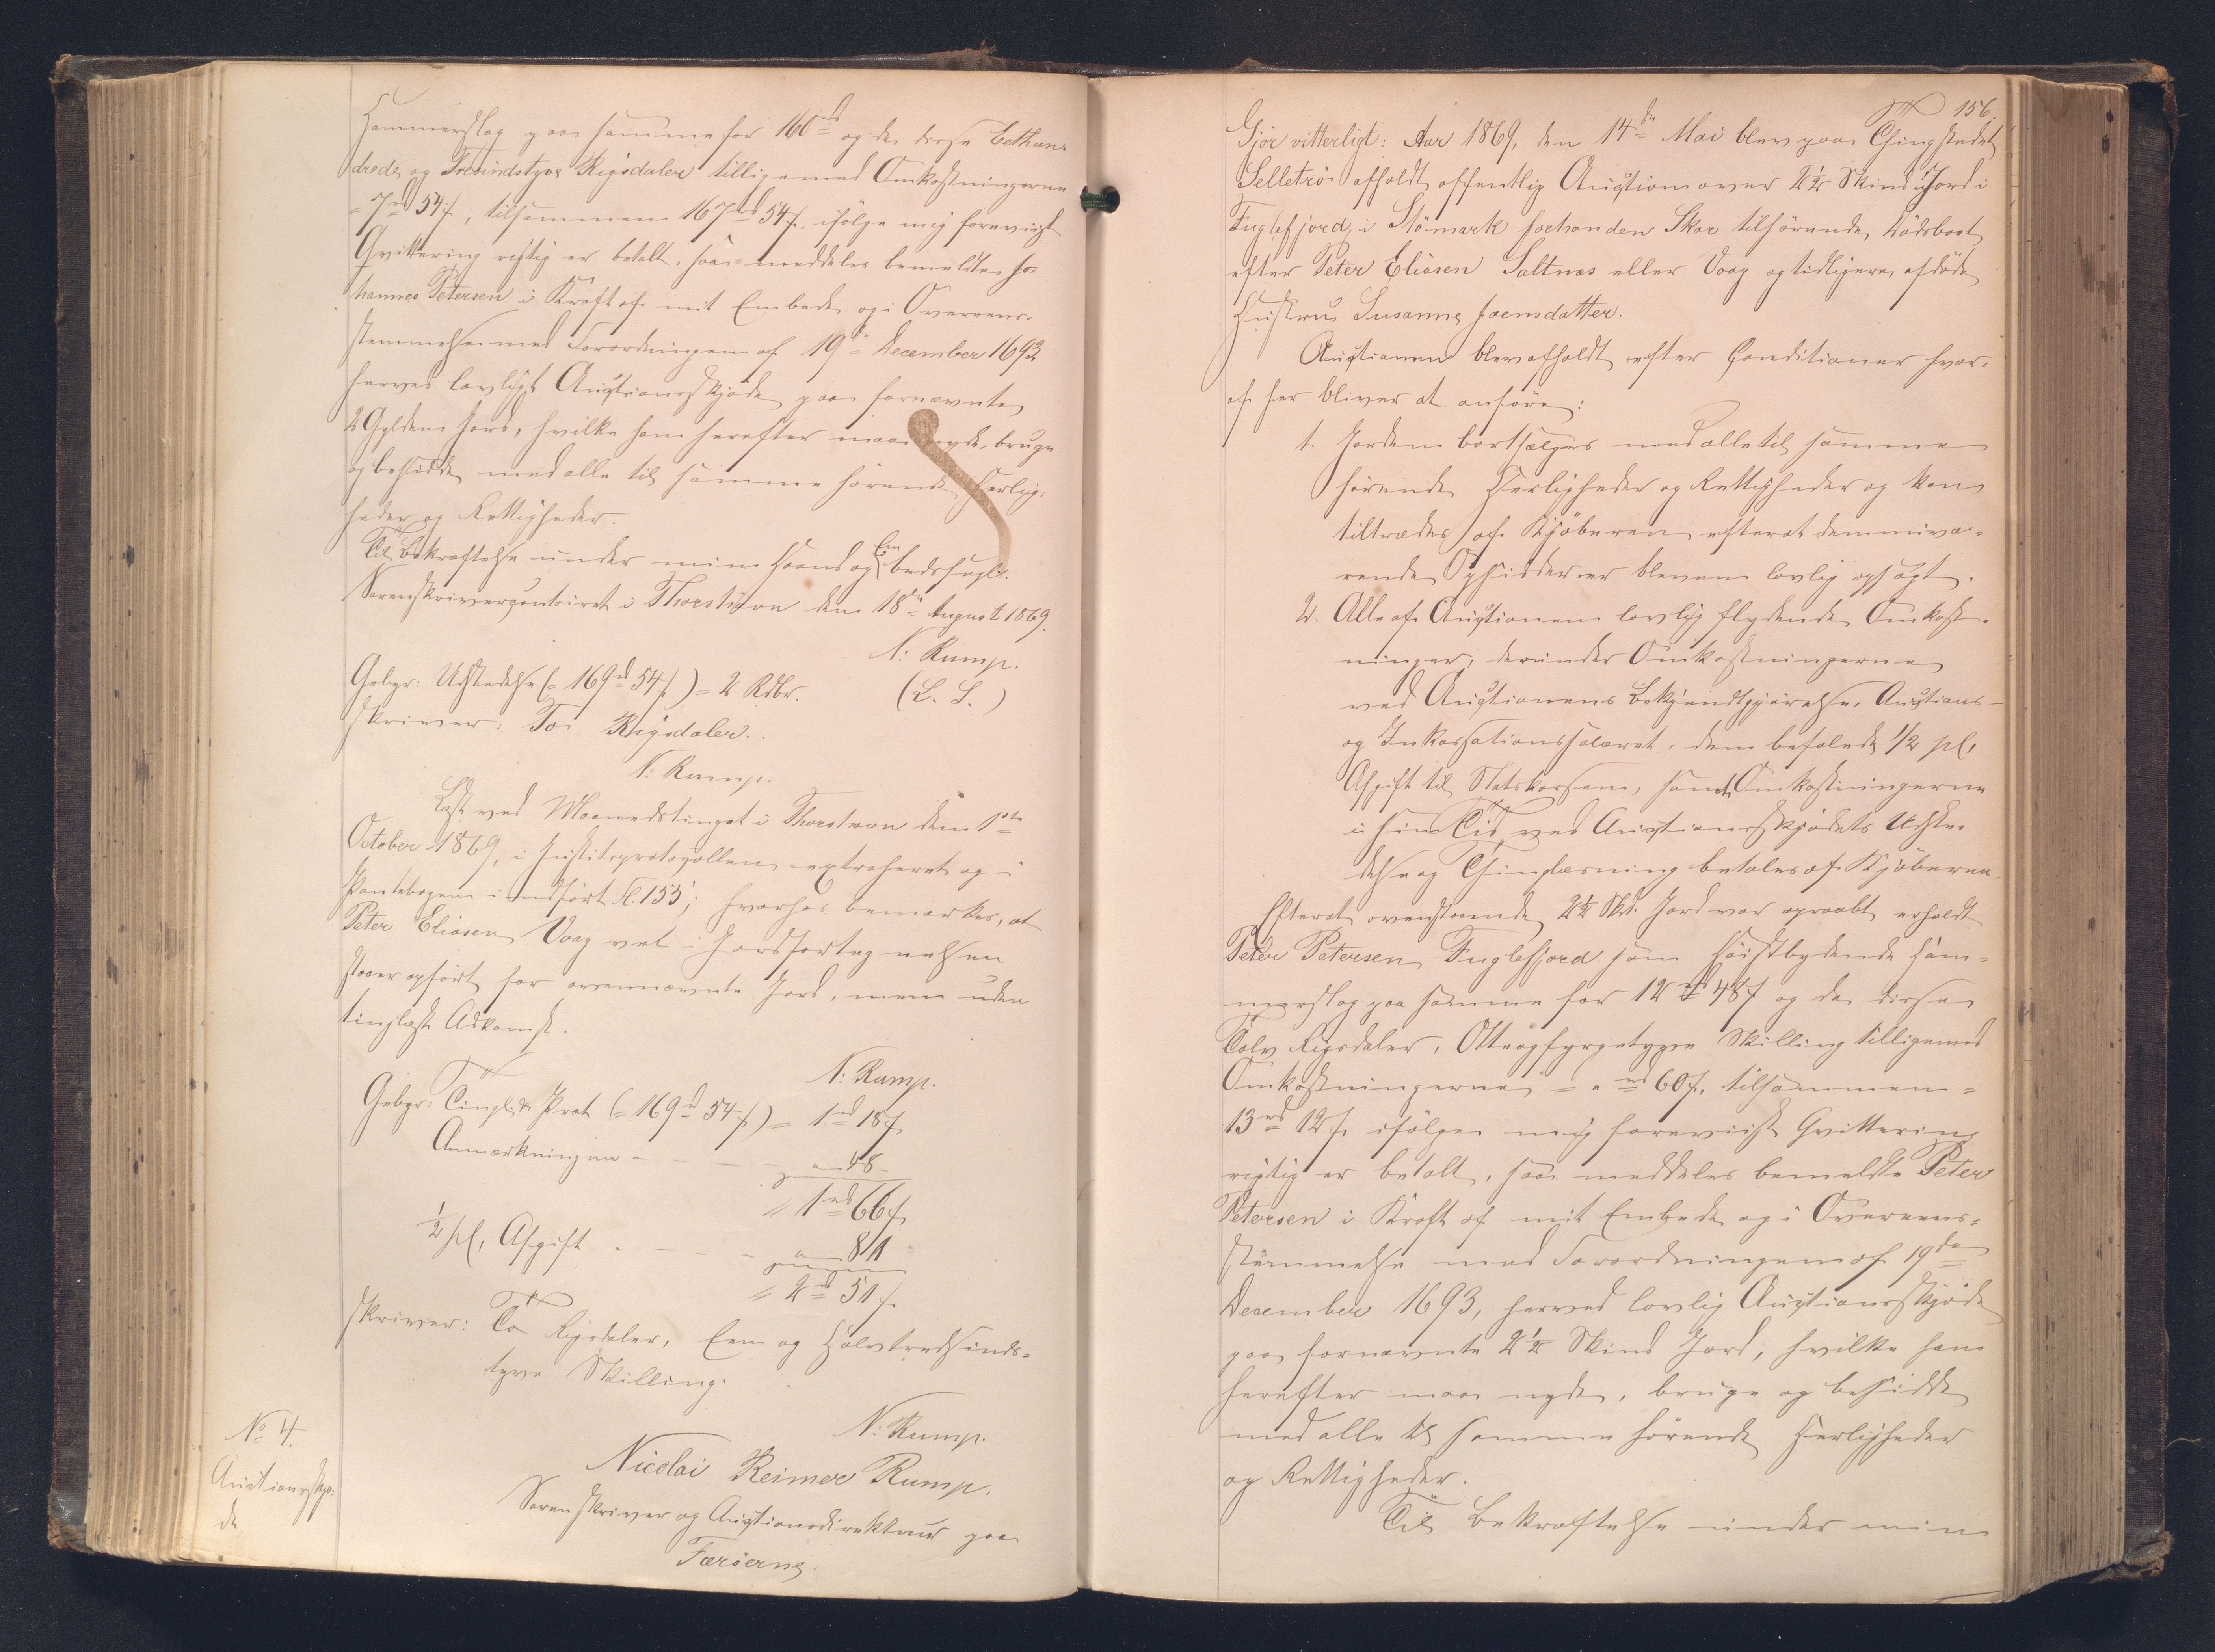 Hammerslag paa samme for 160 rd og da disse Eethun-
drede og Tresindstyve Rigsdaler tilligemed Omkostningerne
= 7 rd 54 ß, tilsammen 167 rd 54 ß, ifølge mig foreviist
Qvittering rigtig er betalt, saa meddeles bemeldte Jo-
hannes Petersen i Kraft af mit Embede og i Overeens-
stemmelse med Forordningen af 19de December 1693
herved lovligt Auctionsskjøde paa fornævnte
2 Gylden Jord, hvilke han herefter maa nyde, bruge
og besidde med alle til samme hørende Herlig-
heder og Rettigheder.
Til Bekræftelse under min Haand og Embedssegl.
Sorenskrivercontoiret i Thorshavn den 18de August 1869.
N: Rump.
(L. S.)
Gebyr: Udstedelse (= 169 rd 54 ß) = 2 Rdlr.
skriver: To Rigsdaler.
N: Rump.
Læst ved Maanedstinget i Thorshavn den 1ste
October 1869, i Justitsprotocollen extraheret og i
Pantebogen indført Fl. 155; hvorhos bemærkes, at
Peter Eliasen Vaag vel i Jordfortegnelsen
staaer opført for ovennævnte Jord, men uden
tinglæst Adkomst.
N: Rump.
Gebyr: Tingl. & Prot (= 169 rd 54 ß) = 1 rd 18 ß
Anmærkningen - - - - " 48 -
= 1 rd 66 ß
1/2 pCt. Afgift - - - - " 81 -
= 2 rd 51 ß.
skriver: To Rigsdaler, Een og Halvtredsinds-
tyve Skilling.
N: Rump.
No 4.
Auctionsskjø-
de
Nicolai Reimer Rump,
Sorenskriver og Auctionsdirekteur paa
Færöerne,
156.
Gjør vitterligt: Aar 1869, den 14de Mai blev paa Thingstedet
Selletrö afholdt offentlig Auction over 2 1/2 Skind Jord i
Fuglefjord, i Stömark forhanden Skar tilhørende Dødsboet
efter Peter Eliasen Saltnæs eller Vaag og tidligere afdøde
Hustru Susanne Joensdatter.
Auctionen blev afholdt efter Conditioner hvor-
af her bliver at anføre:
1. Jorden bortsælges med alle til samme
hørende Herligheder og Rettigheder og kan
tiltrædes af Kjøberen efterat den nuvæ-
rende Opsidder er bleven lovlig opsagt.
2. Alle af Auctionen lovlig flydende Omkost-
ninger, derunder Omkostningerne
ved Auctionens Bekjendtgjørelse, Auctions-
og Inkassationssalæret, den befalede 1/2 pCt.
Afgift til Statskassen, samt Omkostningerne
i sin Tid ved Auctionsskjødets Udste-
delse og Thinglæsning betales af Kjøberen.
Efterat ovenstaaende 2 1/2 Skd. Jord var opraabt erholdt
Peter Petersen Fuglefjord som Høistbydende Ham-
merslag paa samme for 12 rd 48 ß og da disse
Tolv Rigsdaler, Otteogfyrgetyve Skilling tilligemed
Omkostningerne = " rd 60 ß, tilsammen =
13 rd 12 ß ifølge mig foreviist Qvittering
rigtig er betalt, saa meddeles bemeldte Peter
Petersen i Kraft af mit Embede og i Overeens-
stemmelse med Forordningen af 19de
December 1693, herved lovlig Auctionsskjøde
paa fornævnte 2 1/2 Skind Jord, hvilke han
herefter maa nyde, bruge og besidde
med alle til samme hørende Herligheder
og Rettigheder.
Til Bekræftelse under min